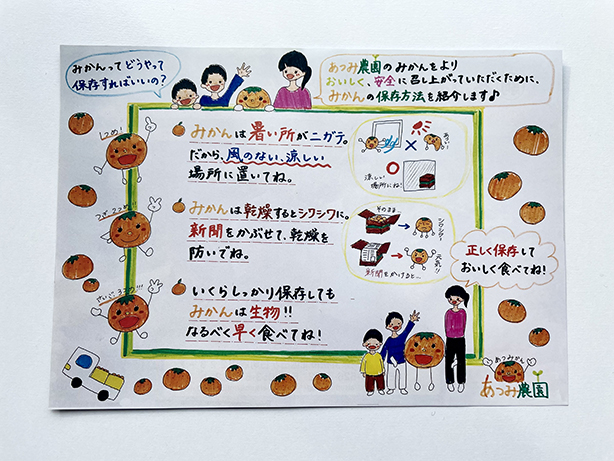 みかんってどうやって
保存すればいいの?
あつみ農園のみかんをより
おいしく、安全に召し上がっていただくために、
みかんの保存方法を紹介します♪
1つめ!
みかんは暑い所がニガテ。
だから、風のない、涼しい
場所に置いてね。
あつい
涼しい
場所にね!
2つめ!
みかんは乾燥するとシワシワに。
新聞をかぶせて、乾燥を
防いでね。
そのまま
シワシワ
元気!
新聞をかけると…
さいご3つめ!!
いくらしっかり保存しても
みかんは生物!!
なるべく早く食べてね!
正しく保存して
おいしく食べてね!
あつみかん
あつみ農園